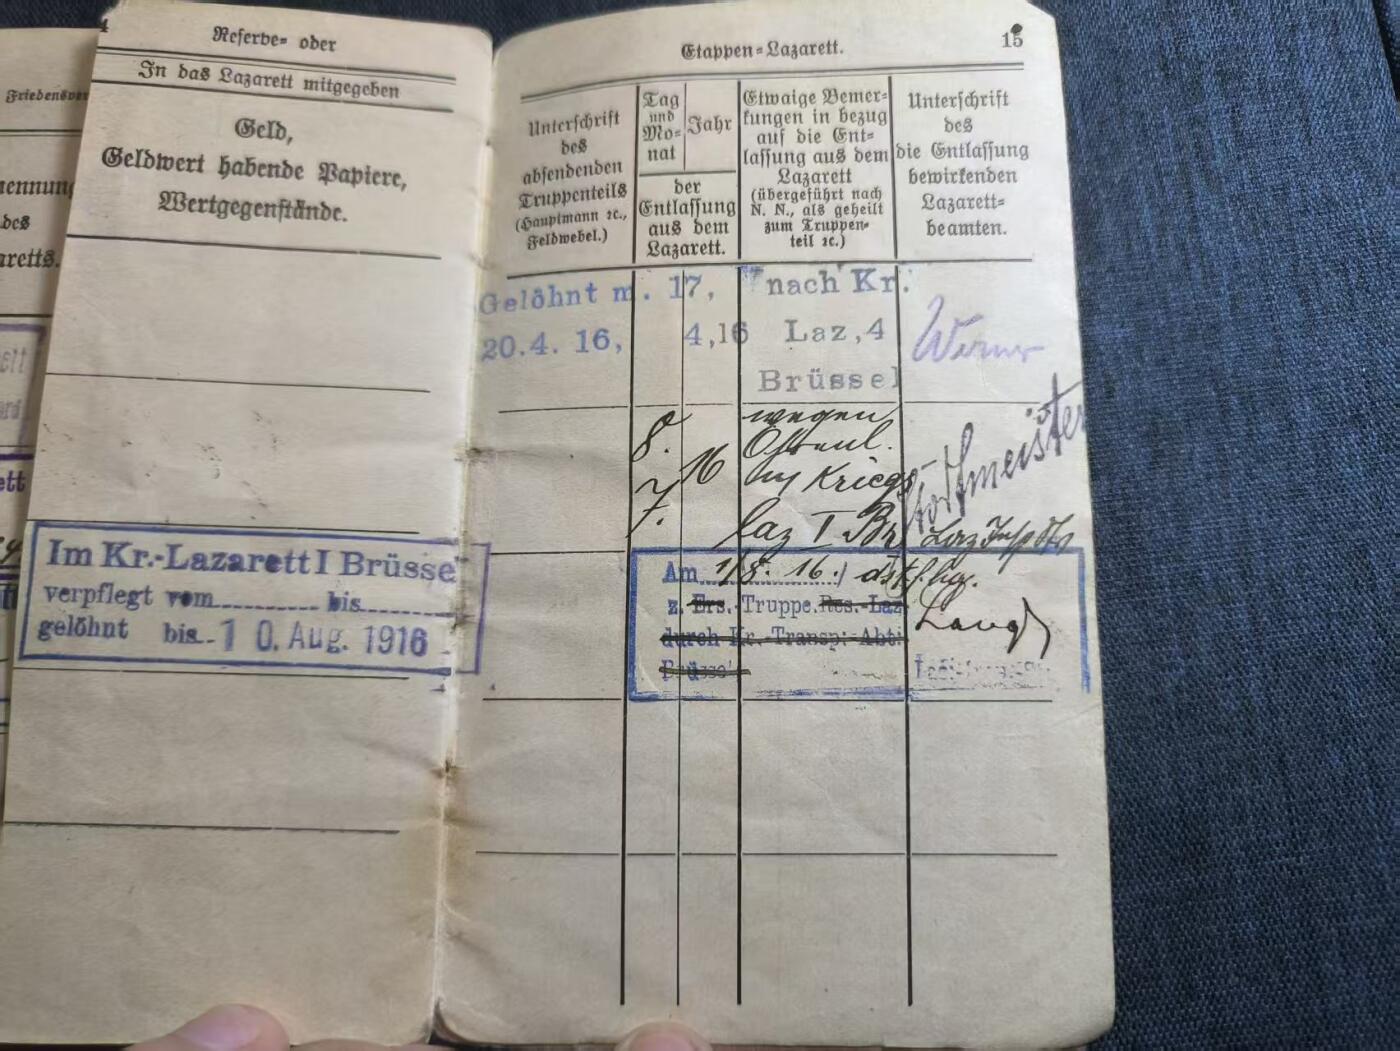 4
Reserve- oder
In das Lazarett mitgegeben
Geld,
Geldwert habende Papiere,
Wertgegenstände.
Im Kr.-Lazarett I Brüsse
verpflegt vom bis
gelöhnt bis 10. Aug. 1916
Friedensver
nennung
des
aretts.
ett
Etappen-Lazarett.
15
Unterschrift
des
absendenden
Truppenteils
(Hauptmann ꝛc.,
Feldwebel.)
Tag
und
Mo-
nat
Jahr
der
Entlassung
aus dem
Lazarett.
Etwaige Bemer-
kungen in bezug
auf die Ent-
lassung aus dem
Lazarett
(übergeführt nach
N. N., als geheilt
zum Truppen-
teil ꝛc.)
Unterschrift
des
die Entlassung
bewirkenden
Lazarett-
beamten.
Gelöhnt m. 17, nach Kr.
20.4. 16, 4,16 Laz,4
Brüssel
Werner
8.
7.
16
wegen
in Kriegs
laz I Br
Am 1/8. 16.
z. Ers.-Truppe. Res.-Laz
durch Kr.-Transp.-Abt.
Brüssel